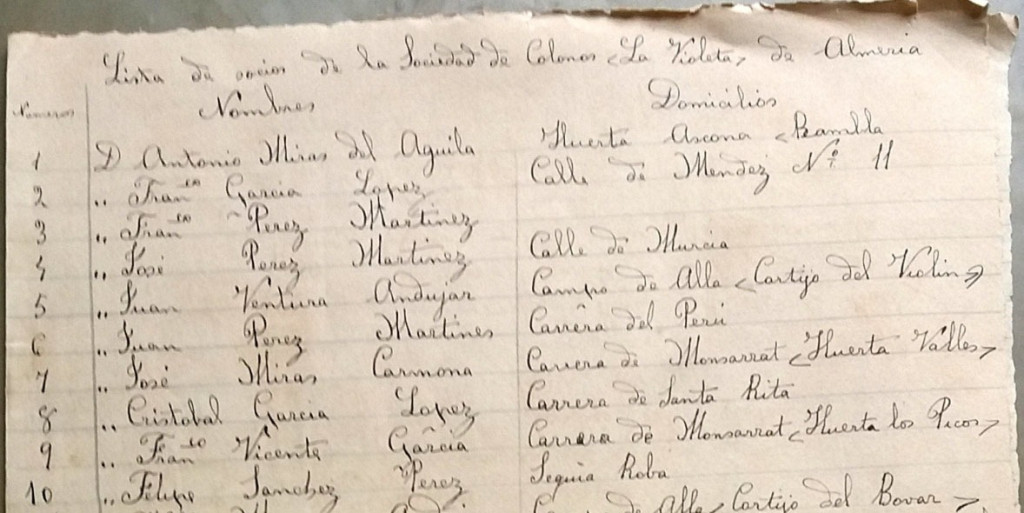 Lista de socios de la Sociedad de Colonos <La Violeta> de Almeria
Numeros Nombres Domicilios
1 D Antonio Miras del Aguila Huerta Ascona <Rambla
2 " Fran^co Garcia Lopez Calle de Mendez Nº 11
3 " Fran^co Perez Martinez
4 " José Perez Martinez Calle de Murcia
5 " Juan Ventura Andujar Campo de Alla <Cortijo del Violin>
6 " Juan Perez Martines Carrera del Perú
7 " José Miras Carmona Carrera de Monsarrat <Huerta Valles>
8 " Cristobal Garcia Lopez Carrera de Santa Rita
9 " Fran^co Vicente Garcia Carrera de Monsarrat <Huerta los Picos>
10 " Felipe Sanchez Perez Seguia Roba
de Alla <Cortijo del Bovar>